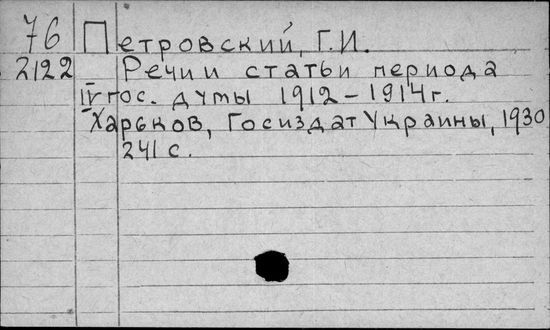 76 Петровский, Г.И.
2122 Речи и статьи периода
IV гос. думы 1912 – 1914 г.
Харьков, Госиздат Украины, 1930
241 с.